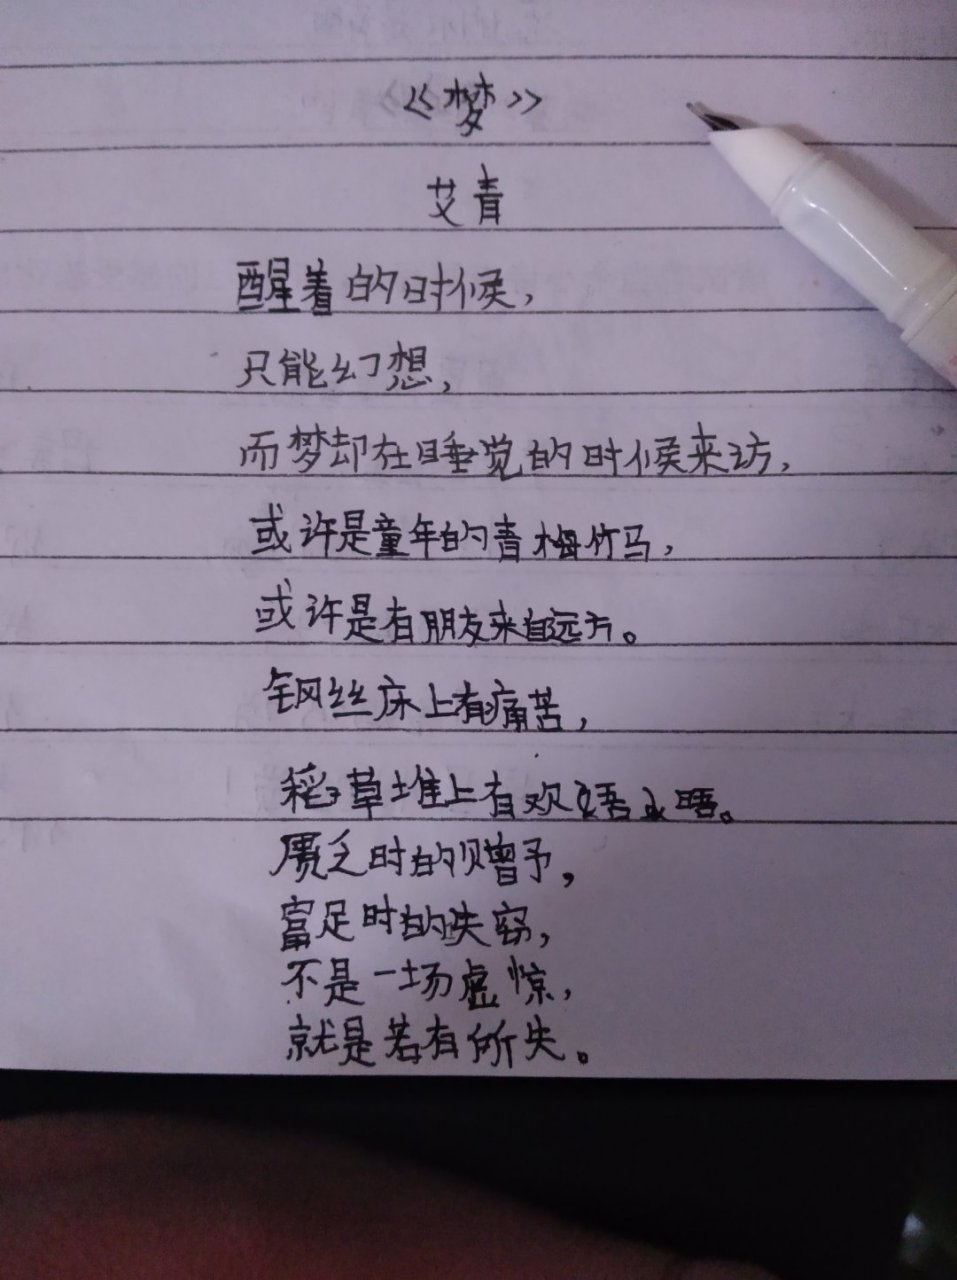 《梦》
艾青
醒着的时候,
只能幻想,
而梦却在睡觉的时候来访,
或许是童年的青梅竹马,
或许是有朋友来自远方。
钢丝床上有痛苦,
稻草堆上有欢
乏时的赠予,
富足时的失窃,
不是一场虚惊,
就是若有所失。